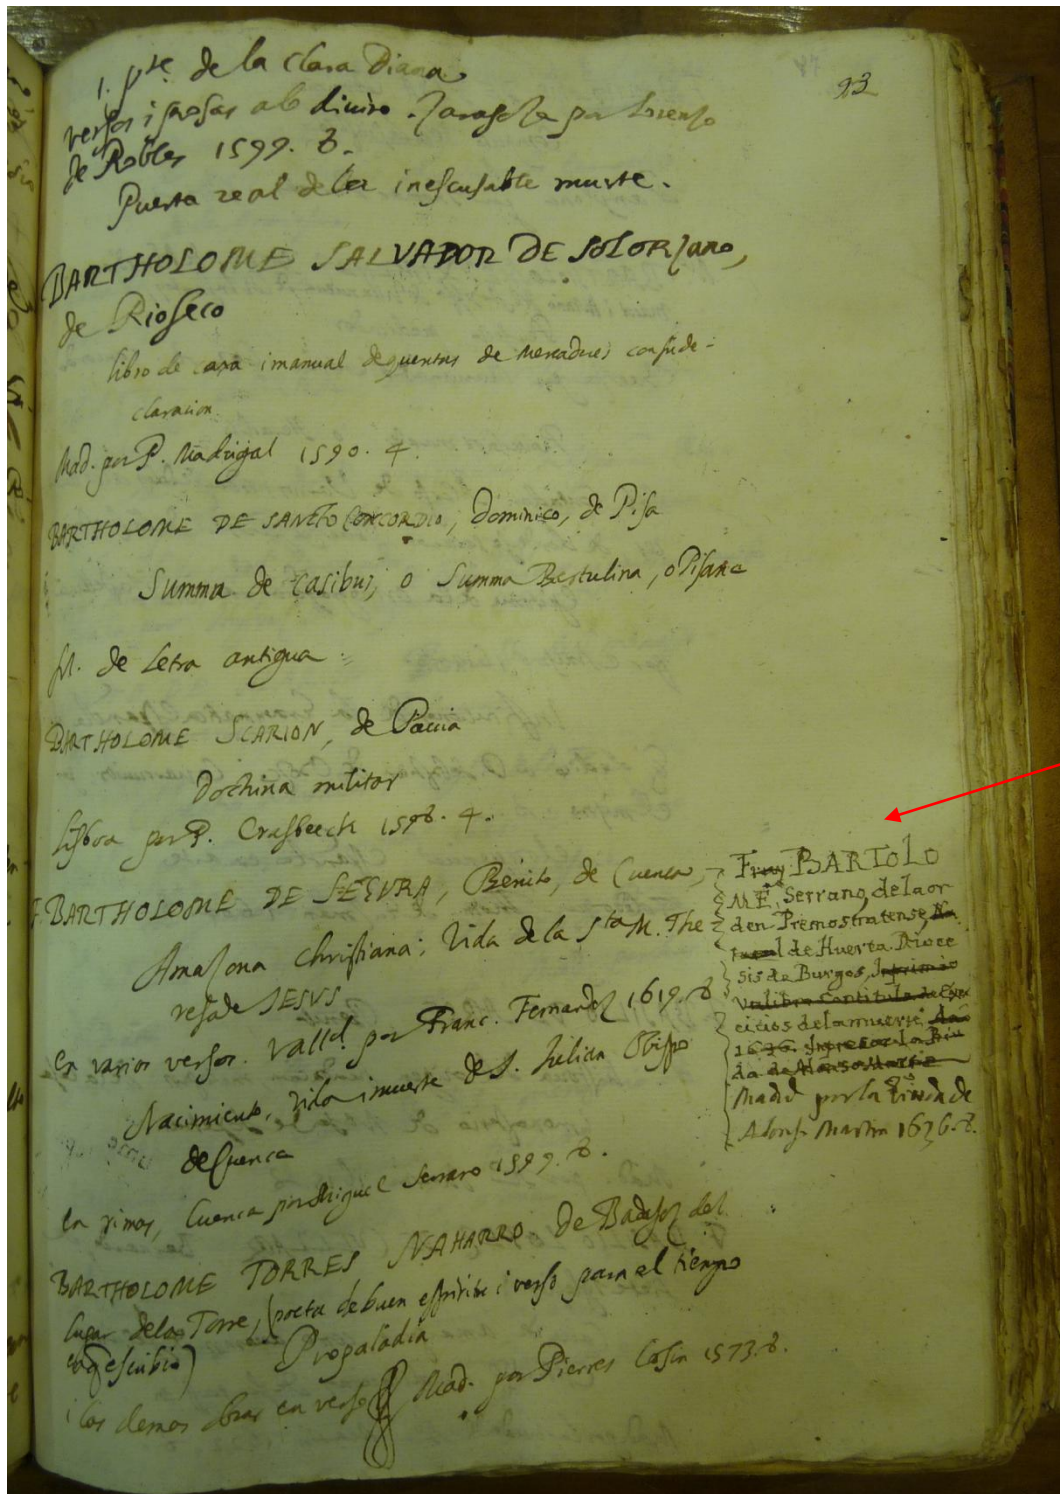 93
1. pte. de la clara Diana
versos i prosas a lo divino. Zaragoza por Lorenzo
de Robles 1599. 8.
Puerta real de la inescusable muerte.
BARTHOLOME SALVADOR DE SOLORZano,
de Rioseco
libro de caxa i manual de quentas de Mercaderes con su de-
claracion.
Mad. por P. Madrigal 1590. 4.
BARTHOLOME DE SANCTO CONCORDIO, Dominico, de Pisa
Summa de Casibus, o Summa Bestulina, o Pisana
M. de letra antigua
BARTHOLOME SCARION, de Pavia
Doctrina militar
Lisboa por P. Crasbeeck 1598. 4.
BARTHOLOME DE SEGVRA, Benito, de Cuenca,
Amazona Christiana; Vida de la Sta M. The
resa de JESVS
en varios versos. Valld. por Franc. Fernandez 1619. 8
Nacimiento, vida i muerte de S. Julian Obispo
de Cuenca
en rimas, Cuenca por Miguel Serrano 1599. 8.
BARTHOLOME TORRES NAHARRO de Badajoz del
lugar de la Torre, (poeta de buen espiritu i verso para el tiempo
en q escribio) Propaladia
i las demas obras en verso Mad. por Pierres Cosin 1573. 8.
Fray BARTOLO
ME Serrano, de la or
den Premostratense, Na
tural de Huerta Dioce
sis de Burgos, Inprimio
Vn libro Con titula de Exer
cicios de la muerte. Año
1636. Inpresor La Biu
da de Alonso Martin
Madd por la Viuda de
Alonso Martin 1636. 8.